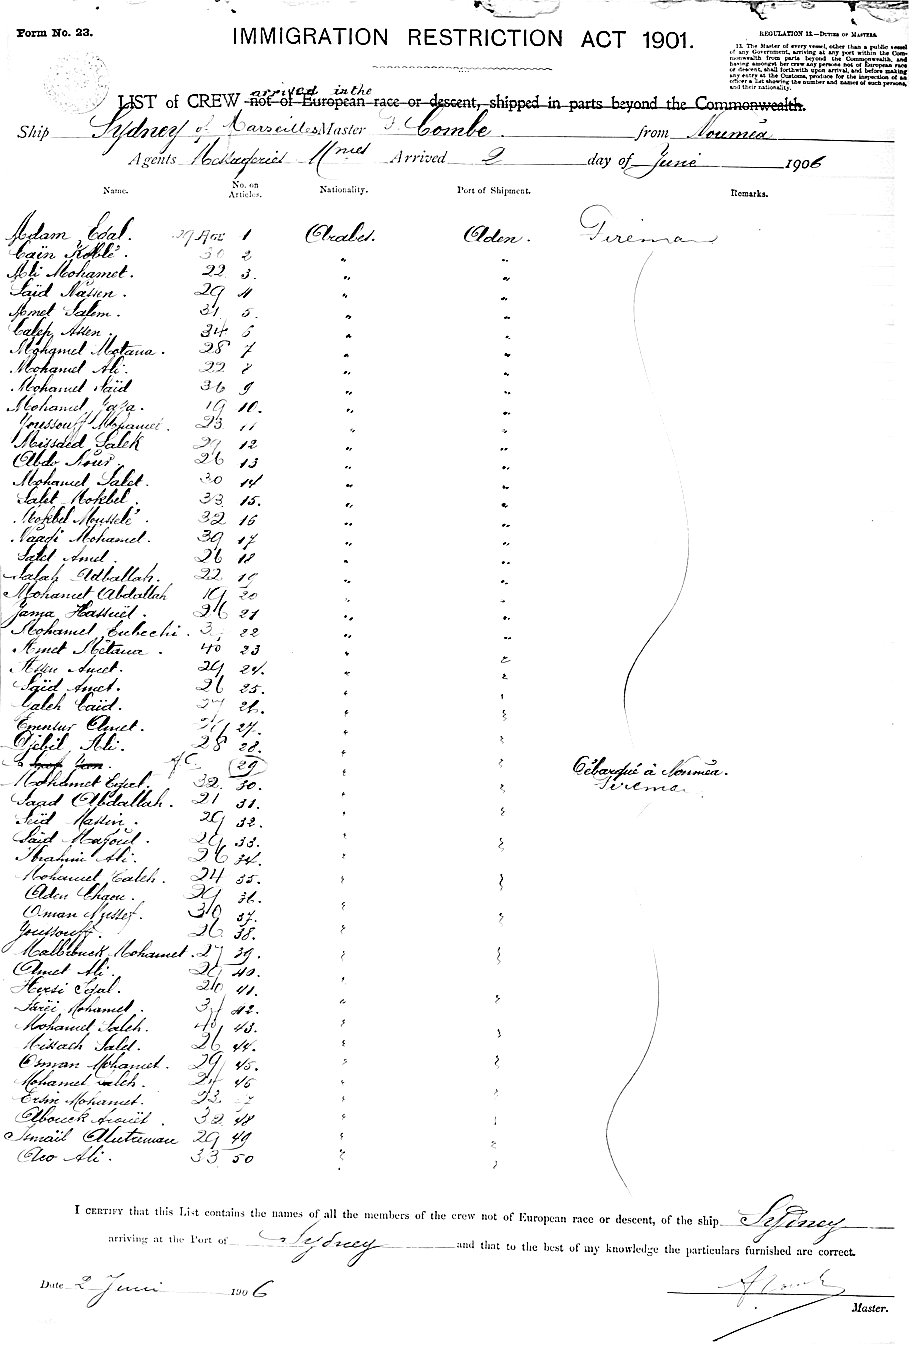 Form No. 23.
IMMIGRATION RESTRICTION ACT 1901.
REGULATION 13.—DUTIES OF MASTERS.
13. The Master of every vessel, other than a public vessel
of any Government, arriving at any port within the Com-
monwealth from parts beyond the Commonwealth, and
having amongst her crew any persons not of European race
or descent, shall forthwith upon arrival, and before making
any entry at the Customs, produce for the inspection of an
officer a list showing the number and names of such persons,
and their nationality.
arrived in the
LIST of CREW not of European race or descent, shipped in parts beyond the Commonwealth.
Ship Sydney of Marseilles Master Combe from Nouméa
Agents Messageries Mmes Arrived 2 day of June 1906
Name. No. on Articles. Nationality. Port of Shipment. Remarks.
Adam Edal. 29 Age 1 Arabes. Aden. Fireman
Caïn Koblé. 30 2 " "
Ali Mohamet. 22 3. " "
Saïd Nassen. 29 4 " "
Amet Salem. 31 5. " "
Caleh Assen. 34 6 " "
Mohamed Motana. 28 7 " "
Mohamed Ali. 22 8 " "
Mohamed Saïd 36 9 " "
Mohamed Yaya. 19 10. " "
Youssouff Mohamed. 23 11 " "
Missaed Salek 12 " "
Abdo Nour. 26 13 " "
Mohamed Salet. 30 14 " "
Salet Mokbel. 33 15. " "
Mokbel Mousselé. 32 16 " "
Naagi Mohamed. 39 17 " "
Saled Amed. 26 18 " "
Salah Adballah. 22 19 " "
Mohamet Abdallah 19 20 " "
Jama Hassuel. 26 21 " "
Mohamed 22 " "
Amet Métana. 40 23 "
Assen Amet. 29 24. "
Saïd Amet. 26 25. "
Caleh Caïd. 27 26. "
Emnsur Amet. 27. "
Djebil Ali. 28 28. "
29 Débarqué à Nouméa.
Mohamet Egal. 32 30. Fireman
Saad Abdallah. 21 31.
Seïd Hassin. 29 32.
Saïd Mafoul. 29 33.
Ibrahim Ali. 26 34.
Mohamed Caleh. 24 35.
Aden Chaou. 29 36.
Oman Nussef. 30 37.
Youssouff. 26 38.
Malbrouck Mohamet. 27 39.
Amet Ali. 29 40.
Hersi Egal. 26 41.
Mohamed. 42.
Mohamed Saleh. 40 43.
Missach Saled. 26 44.
Osman Mohamet. 29 45.
Mohamet Saleh. 24 46
Ersin Mohamet. 23
Abouck 32 48
Ismaïl 29 49
Ali. 33 50
I CERTIFY that this List contains the names of all the members of the crew not of European race or descent, of the ship Sydney
arriving at the Port of Sydney and that to the best of my knowledge the particulars furnished are correct.
Date 2 Juni 1906
Master.